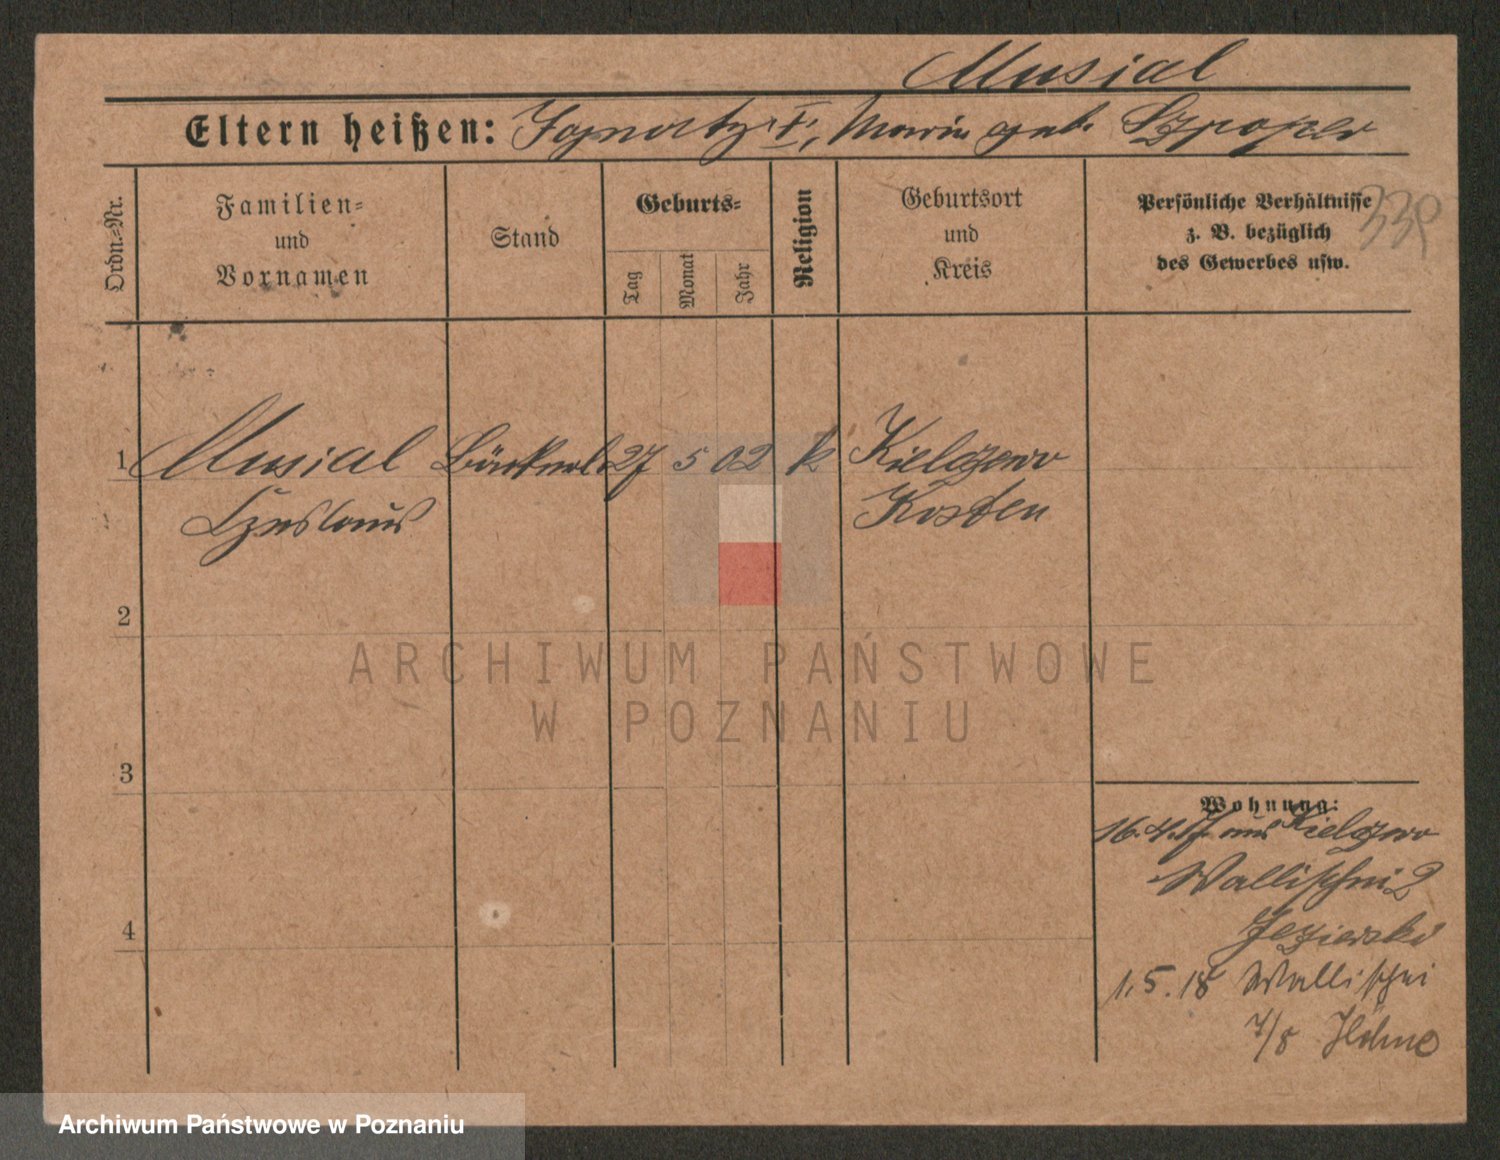 Musial
Eltern heißen: Ignatz †, Marie geb.
339
Ordn.-Nr.
Familien-
und
Vornamen
Stand
Geburts-
Tag
Monat
Jahr
Religion
Geburtsort
und
Kreis
Persönliche Verhältnisse
z. B. bezüglich
des Gewerbes usw.
1 Musial Bäckerl. 27 5 02 k Kielczewo
Czeslaus Kosten
2
3
4
Wohnung:
16.4.17 aus Kielczewo
Wallischei 2
Jezierski
1.5.18 Wallischei
7/8
ARCHIWUM PAŃSTWOWE
W POZNANIU
Archiwum Państwowe w Poznaniu